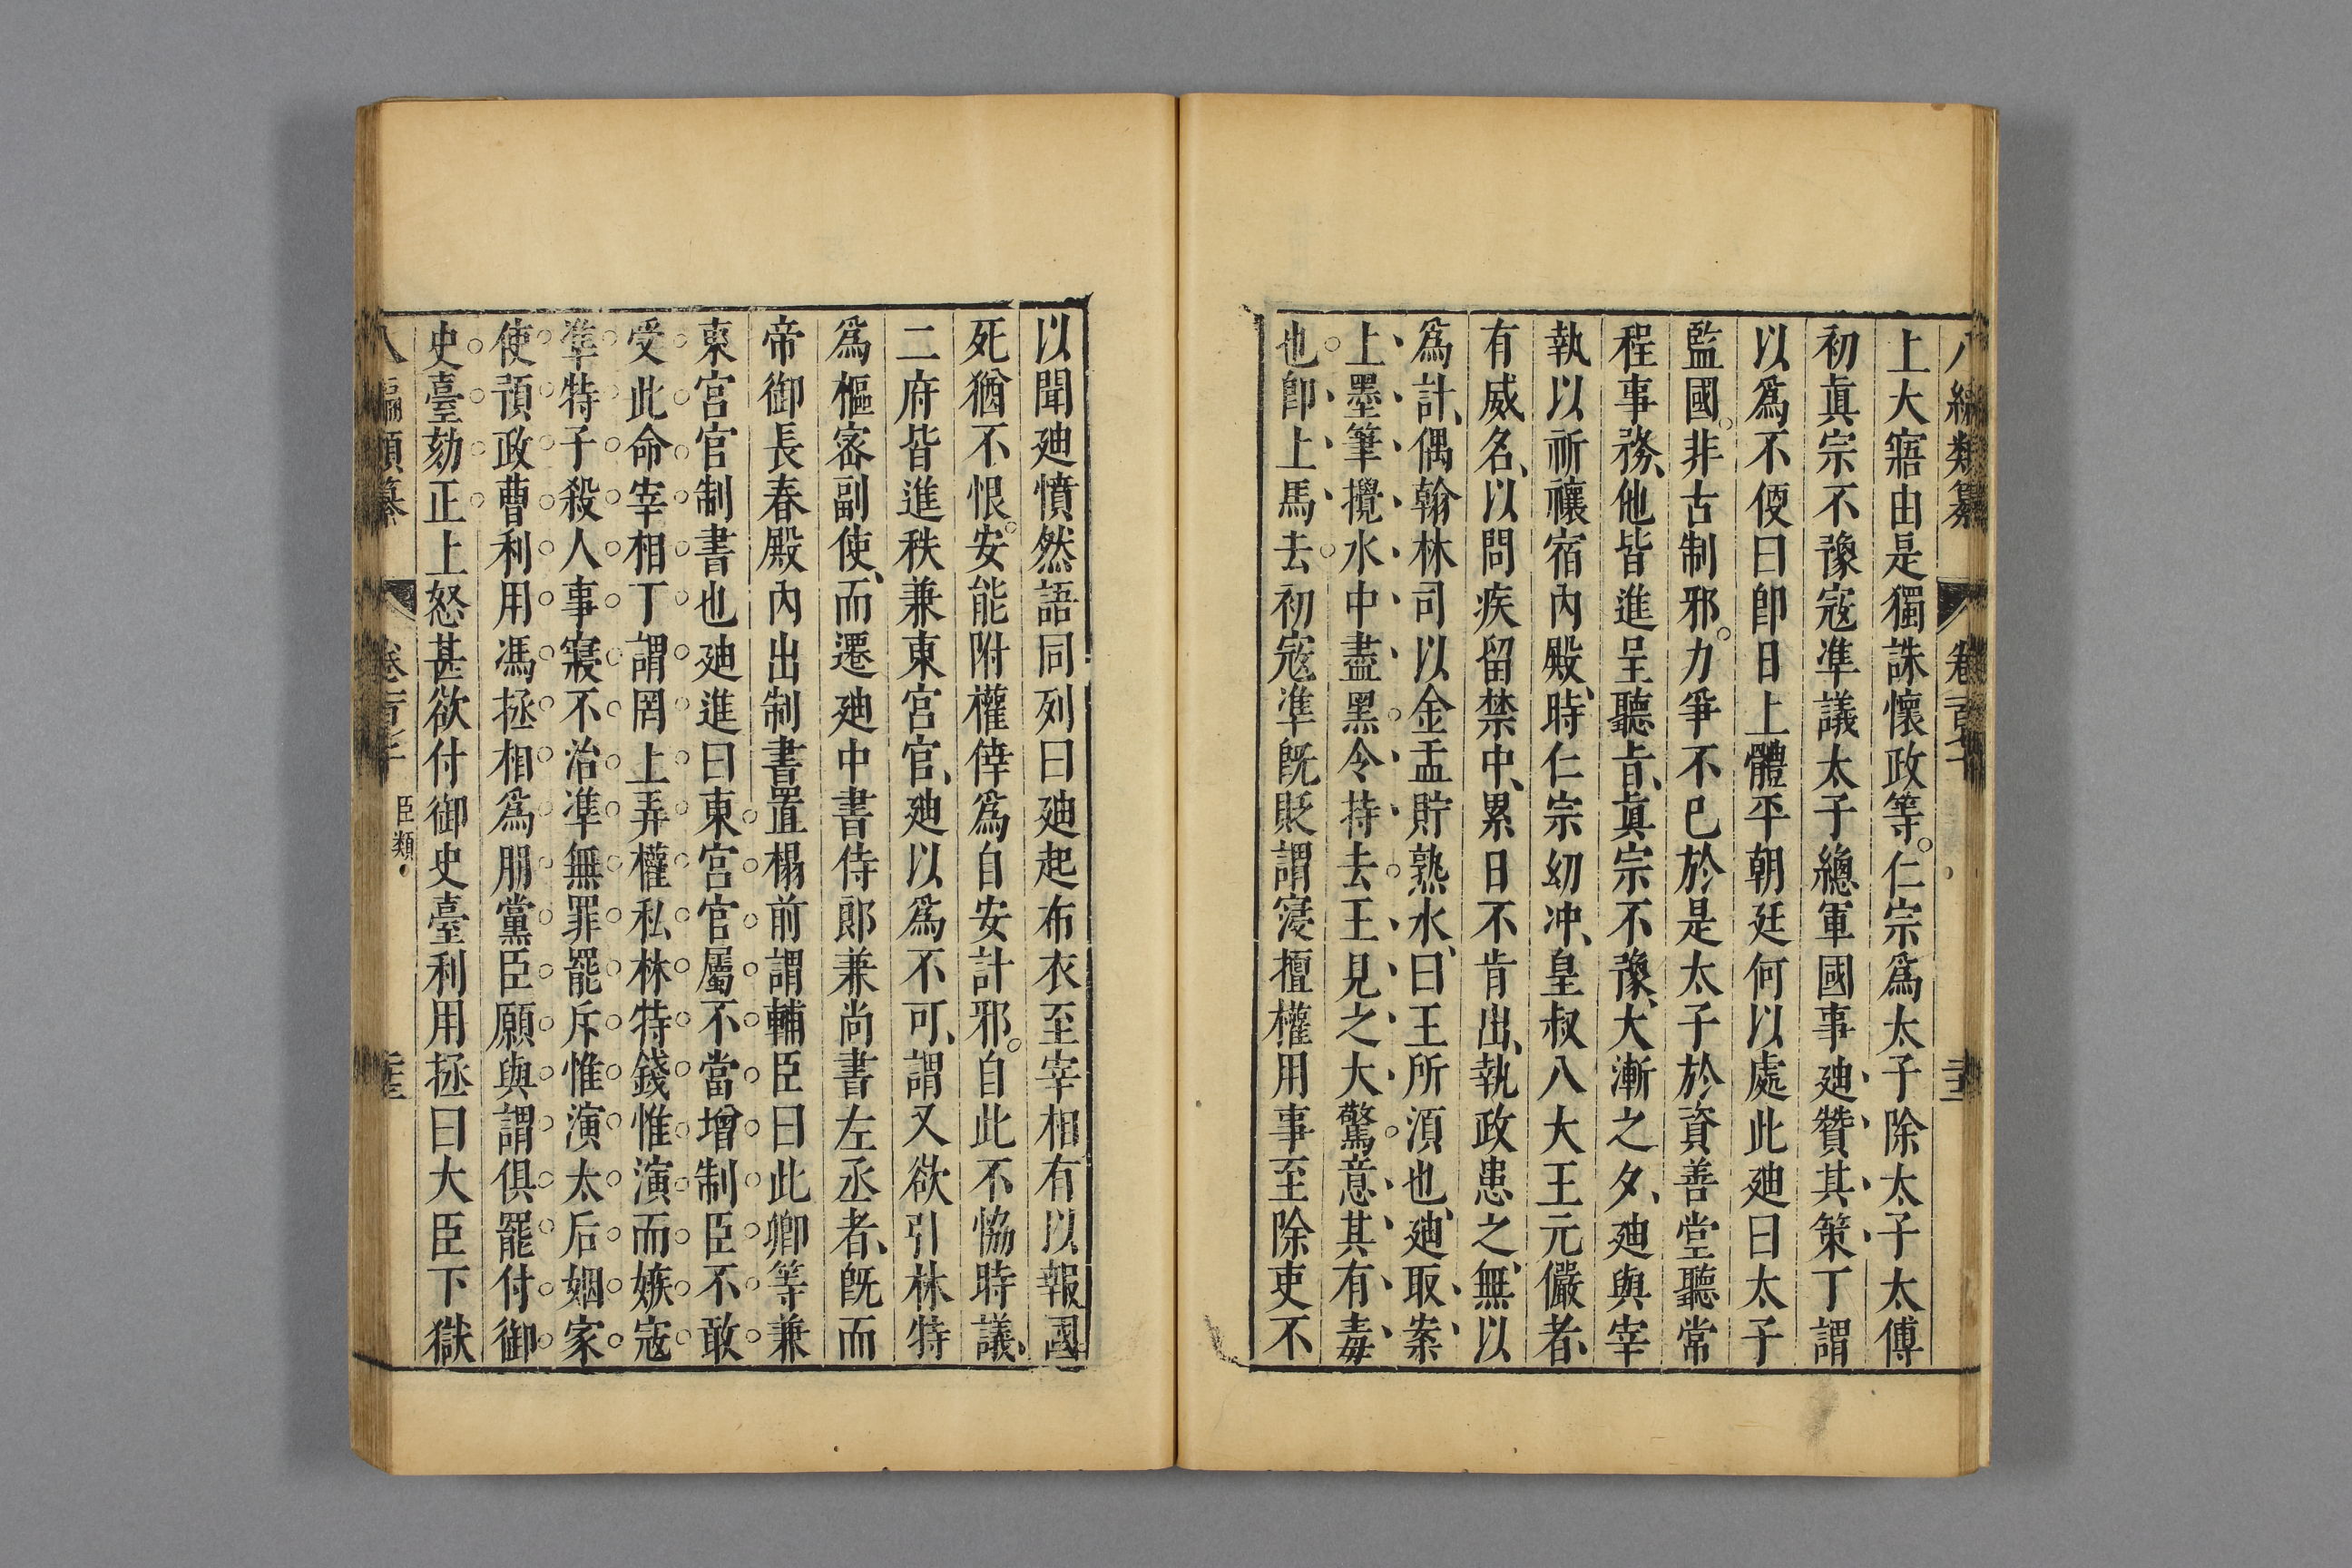 八編類纂 卷百七
上大寤由是獨誅懷政等仁宗爲太子除太子太傅
初眞宗不豫寇準議太子總軍國事廸贊其策丁謂
以爲不便曰卽日上體平朝廷何以處此廸曰太子
監國非古制邪力爭不已於是太子於資善堂聽常
程事務他皆進呈聽旨眞宗不豫大漸之夕廸與宰
執以祈禳宿內殿時仁宗幼冲皇叔八大王元儼者
有威名以問疾留禁中累日不肯出執政患之無以
爲計偶翰林司以金盂貯熟水曰王所須也廸取案
上墨筆攪水中盡黑令持去王見之大驚意其有毒
也卽上馬去初寇準旣貶謂寖擅權用事至除吏不
以聞廸憤然語同列曰廸起布衣至宰相有以報國
死猶不恨安能附權倖爲自安計邪自此不恊時議
二府皆進秩兼東宮官廸以爲不可謂又欲引林特
爲樞密副使而遷廸中書侍郎兼尚書左丞者旣而
帝御長春殿內出制書置榻前謂輔臣曰此卿等兼
東宮官制書也廸進曰東宮官屬不當增制臣不敢
受此命宰相丁謂罔上弄權私林特錢惟演而嫉寇
準特子殺人事寢不治準無罪罷斥惟演太后姻家
使預政曹利用馮拯相爲朋黨臣願與謂俱罷付御
史臺劾正上怒甚欲付御史臺利用拯曰大臣下獄
八編類纂 臣類